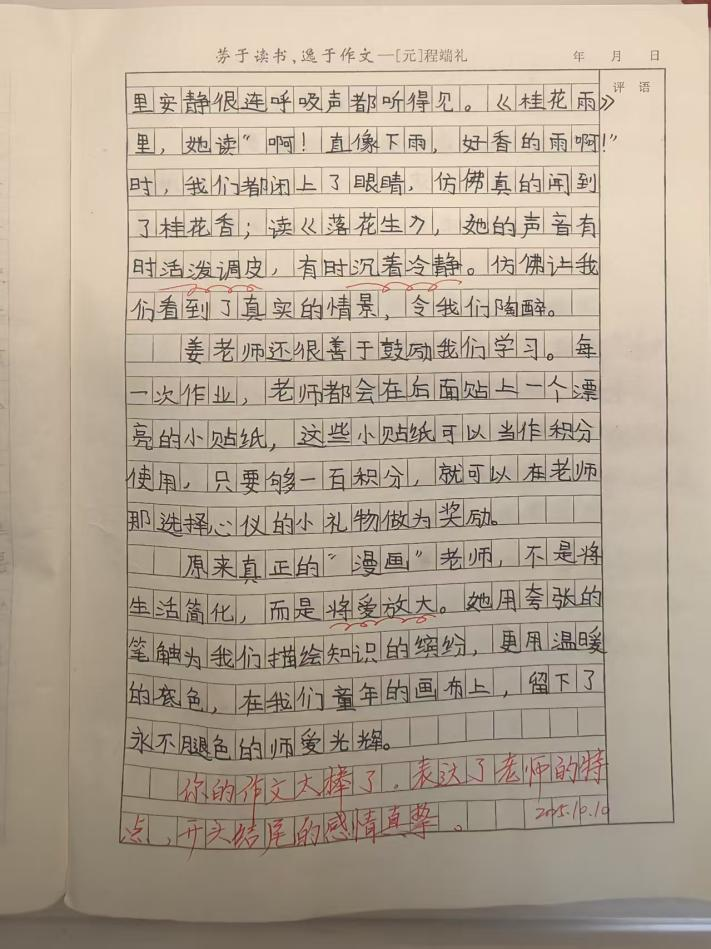 劳于读书，逸于作文—[元]程端礼
年 月 日
评 语
里安静很连呼吸声都听得见。《桂花雨》
里，她读“啊！直像下雨，好香的雨啊！”
时，我们都闭上了眼睛，仿佛真的闻到
了桂花香；读《落花生》，她的声音有
时活泼调皮，有时沉着冷静。仿佛让我
们看到了真实的情景，令我们陶醉。
姜老师还很善于鼓励我们学习。每
一次作业，老师都会在后面贴上一个漂
亮的小贴纸，这些小贴纸可以当作积分
使用，只要够一百积分，就可以在老师
那选择心仪的小礼物做为奖励。
原来真正的“漫画”老师，不是将
生活简化，而是将爱放大。她用夸张的
笔触为我们描绘知识的缤纷，更用温暖
的底色，在我们童年的画布上，留下了
永不腿色的师爱光辉。
你的作文太棒了。表达了老师的特
点，开头结尾的感情真挚。
2025.10.10